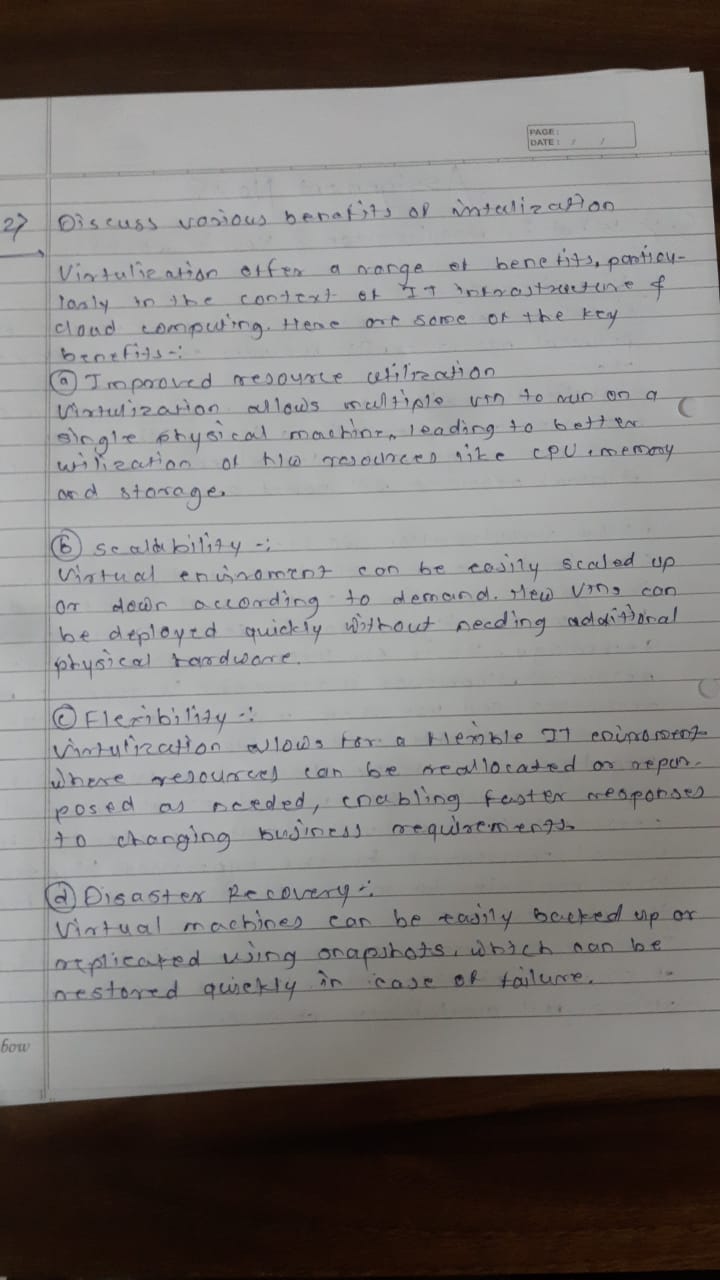 PAGE:
DATE: / /
2) Discuss various benefits of virtulization
Virtulization offer a range of benefits, particu-
larly in the context of IT infrastructure &
cloud computing. Here are some of the key
benefits -:
(a) Improved resource utilization
Virtulization allows multiple vm to run on a
single physical machine, leading to better
utilization of h/w resources like CPU, memory
and storage.
(b) Scalability -:
Virtual environment can be easily scaled up
or down according to demand. New VMs can
be deployed quickly without needing additional
physical hardware.
(c) Flexibility -:
Virtulization allows for a flexible IT enviroment
where resources can be reallocated or repur-
posed as needed, enabling faster responses
to changing business requirements.
(d) Disaster Recovery -:
Virtual machines can be easily backed up or
replicated using snapshots, which can be
restored quickly in case of failure.
bow